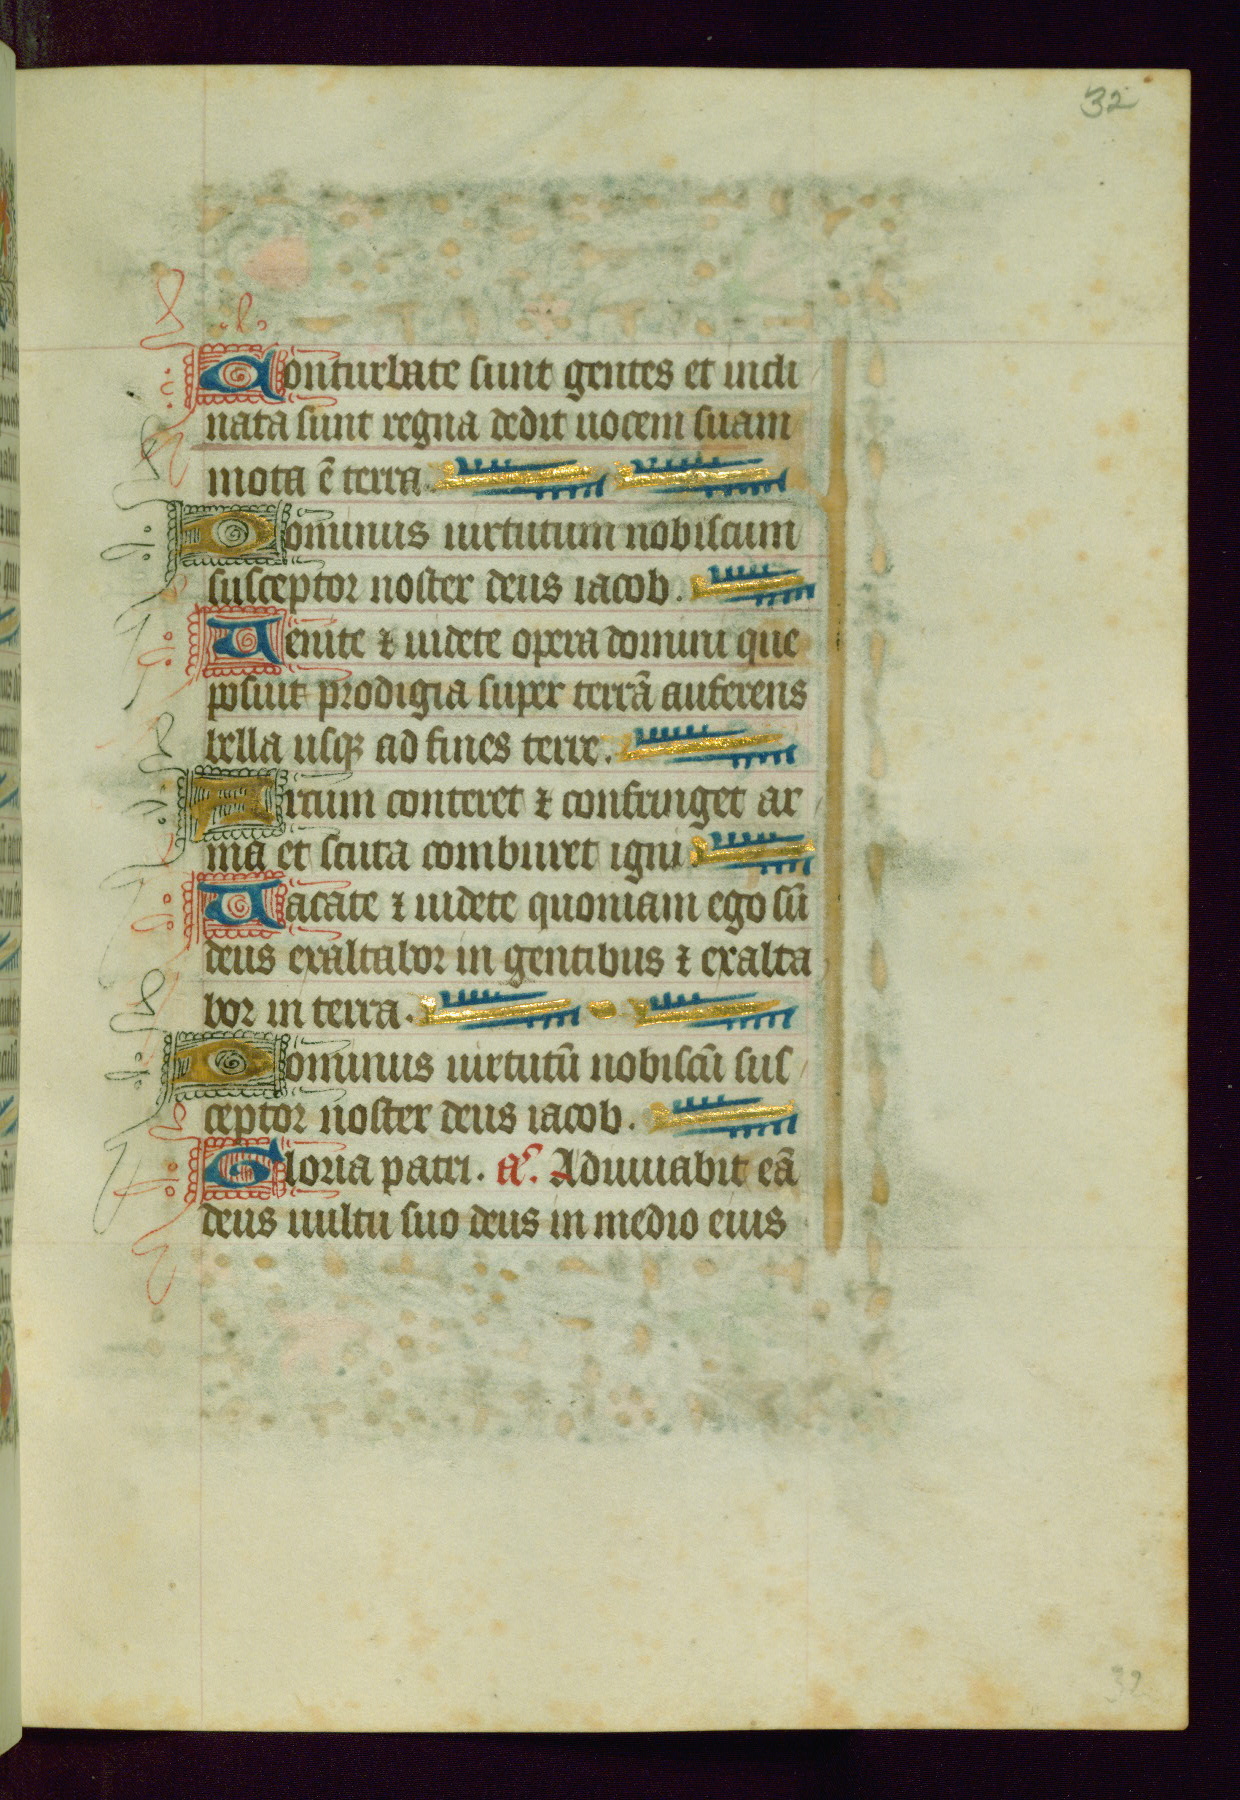 32
Conturbate sunt gentes et incli
nata sunt regna dedit uocem suam
mota ē terra.
Dominus uirtutum nobiscum
susceptor noster deus iacob.
Uenite ⁊ uidete opera domini que
posuit prodigia super terrā auferens
bella usqꝫ ad fines terre.
Arcum conteret ⁊ confringet ar
ma et scuta comburet igni.
Uacate ⁊ uidete quoniam ego sū
deus exaltabor in gentibus ⁊ exalta
bor in terra.
Dominus uirtutū nobiscū sus
ceptor noster deus iacob.
Gloria patri. aˢ. Adiuuabit eā
deus uultu suo deus in medio eius
32